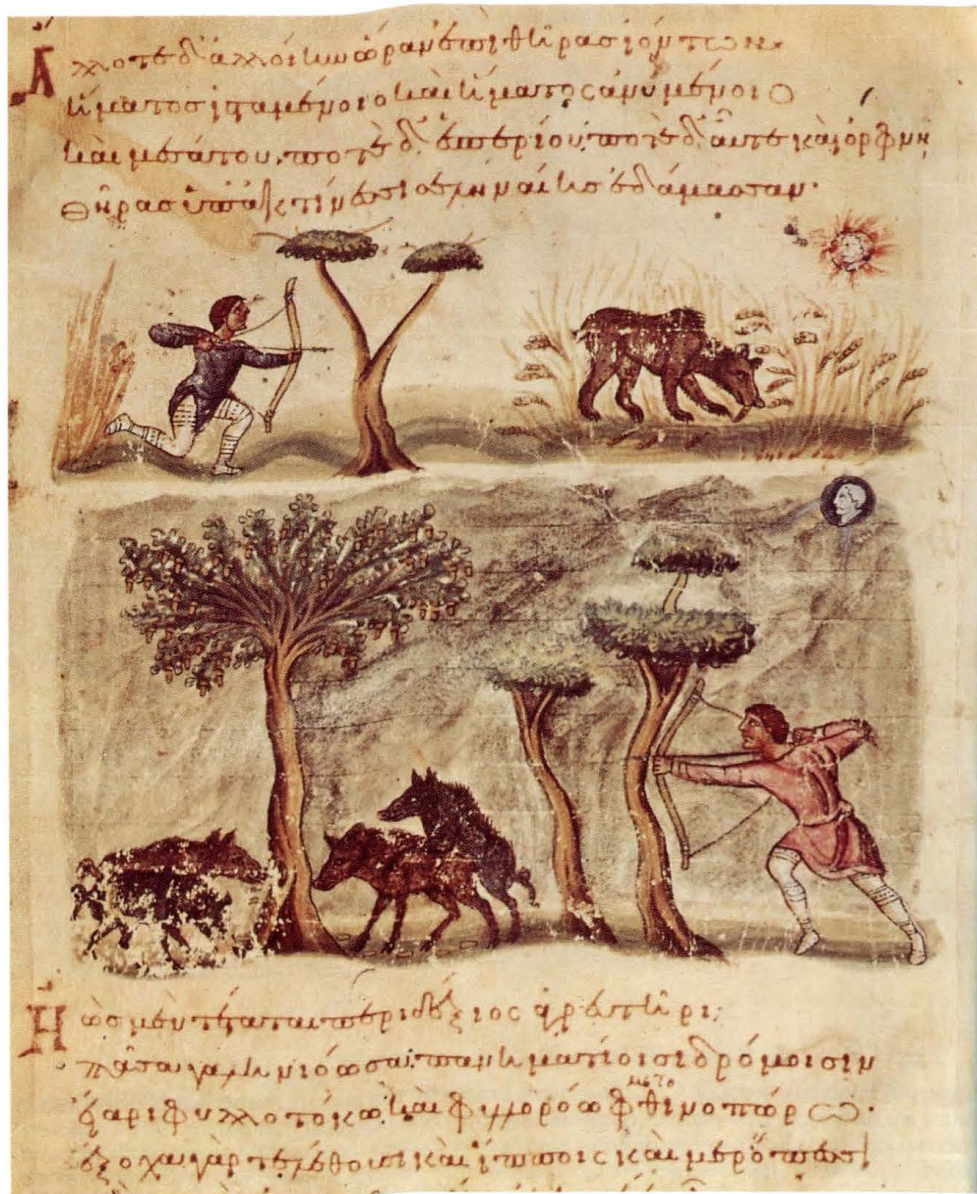 Ἄλλοτε δ' ἀλλοίην ὥραν ἐπι θῆρασ ἰόντων
ἤματοσ ἱσταμένοιο καὶ ἤματος ἀνυμένοιο
καὶ μεσάτου, ποτὲ δ' ἑσπερίου, ποτὲ δ' αὖτε καὶ ὄρφνη
θῆρασ ὑπ' ἀκτίνεσσι σεληναίησ ἐδάμασσαν·
Ἠὼσ μὲν τέταται περιδέξιος ἀγρευτῆρι;
πᾶσα γαληνιόωσα· πανηματίοισι δρόμοισιν
ἔαρι φυλλοτόκω καὶ φυλλορόω φθινοπώρω·
ἔξοχα γάρ τελέθουσι καὶ ἵπποις καὶ μερόπεσσι